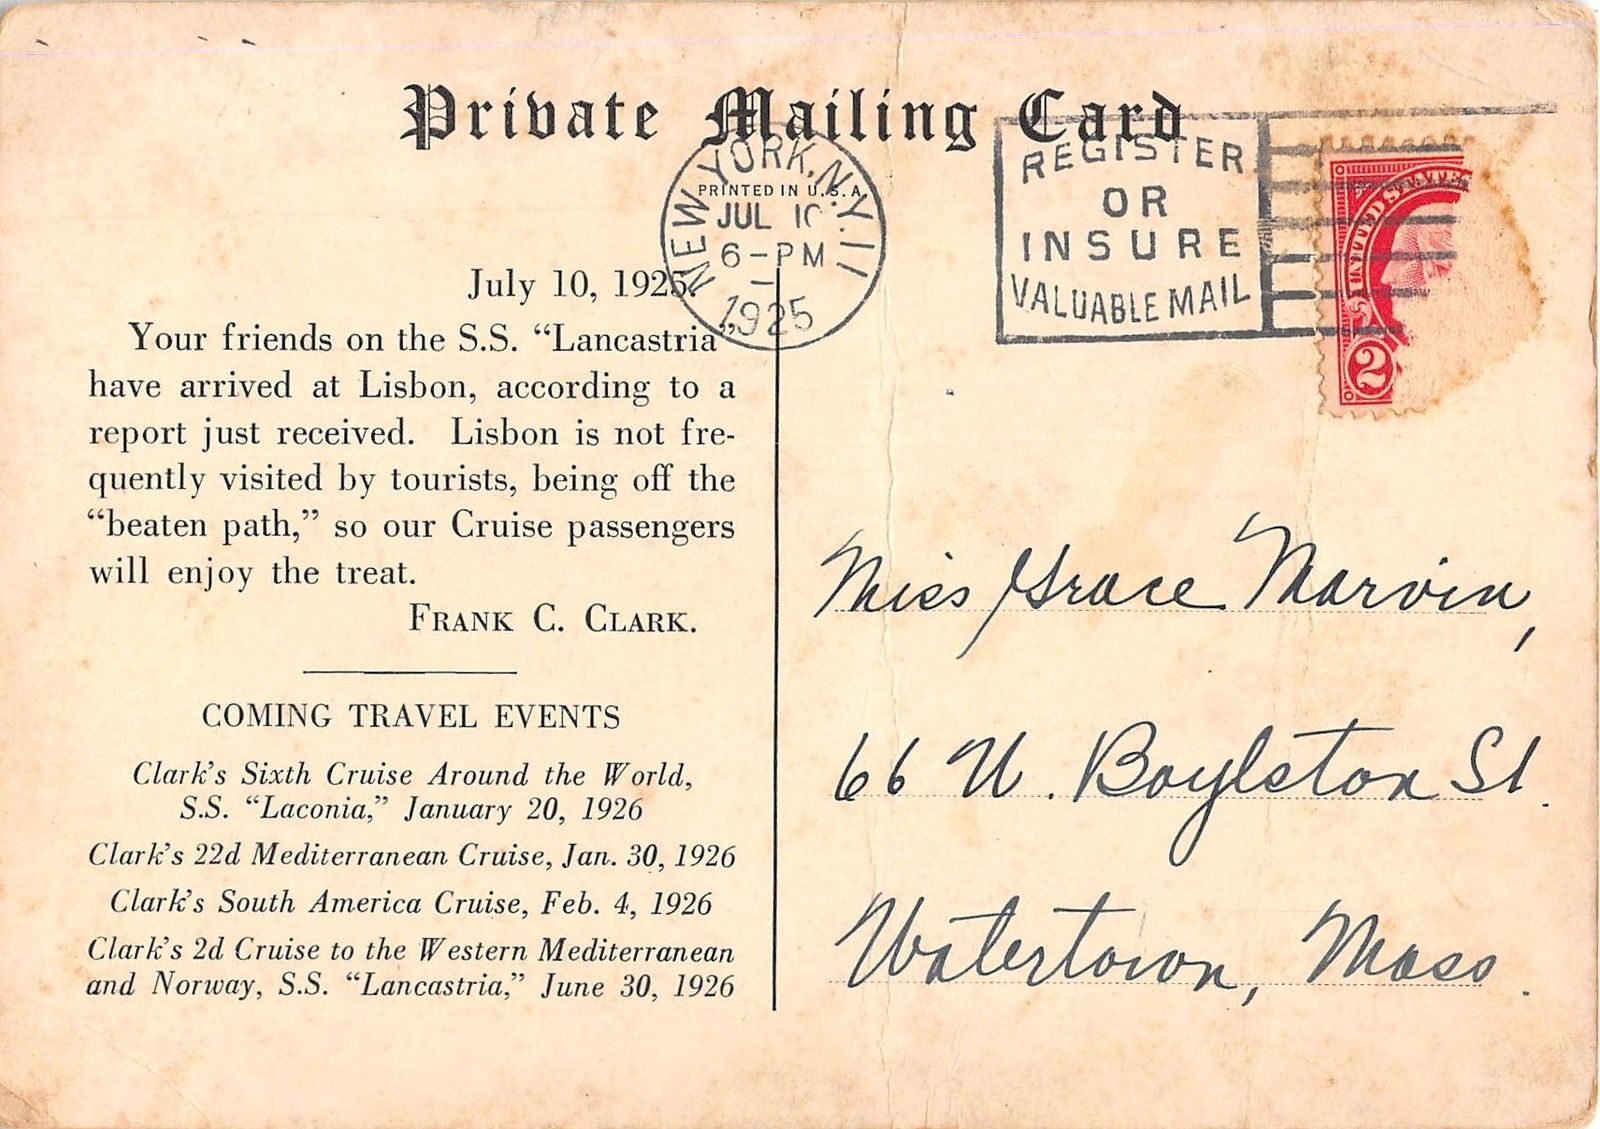 Private Mailing Card
PRINTED IN U.S.A.
NEW YORK, N.Y. 11
JUL 10
6-PM
1925
REGISTER
OR
INSURE
VALUABLE MAIL
UNITED STATES
2
July 10, 1925.
Your friends on the S.S. “Lancastria”
have arrived at Lisbon, according to a
report just received. Lisbon is not fre-
quently visited by tourists, being off the
“beaten path,” so our Cruise passengers
will enjoy the treat.
FRANK C. CLARK.
COMING TRAVEL EVENTS
Clark’s Sixth Cruise Around the World,
S.S. “Laconia,” January 20, 1926
Clark’s 22d Mediterranean Cruise, Jan. 30, 1926
Clark’s South America Cruise, Feb. 4, 1926
Clark’s 2d Cruise to the Western Mediterranean
and Norway, S.S. “Lancastria,” June 30, 1926
Miss Grace Marvin,
66 N. Boylston St.
Watertown, Mass.